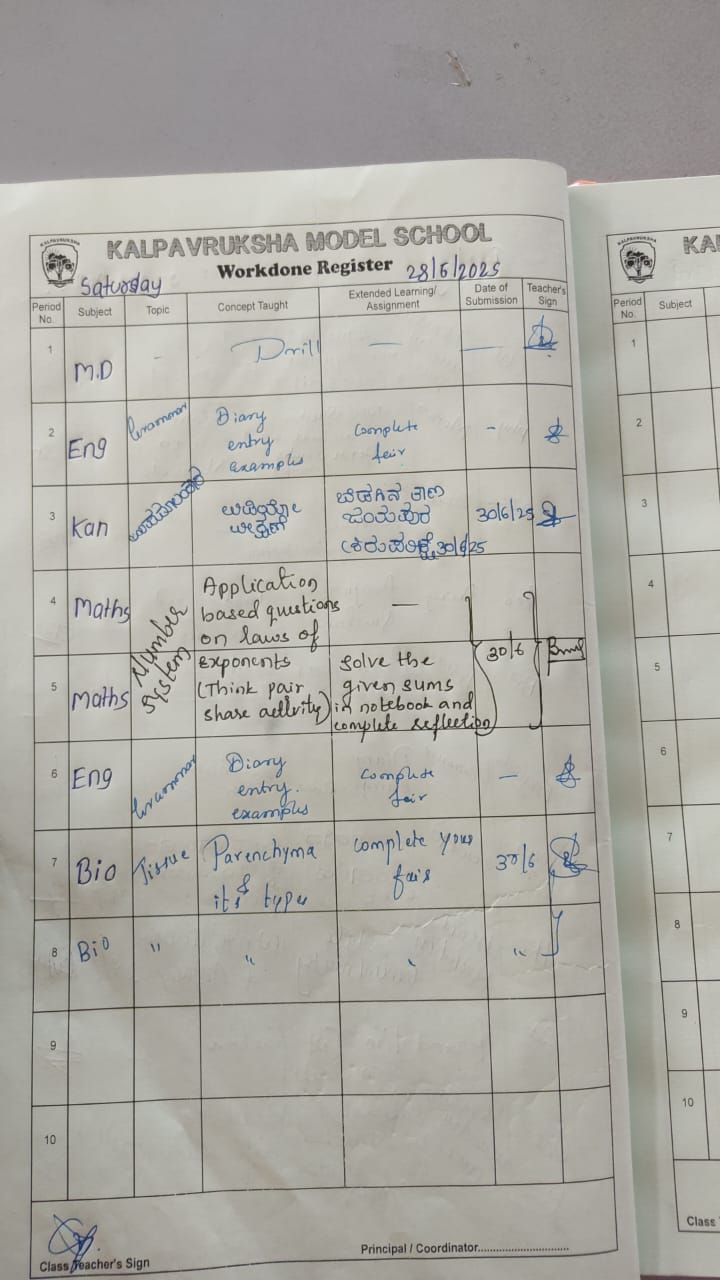 KALPAVRUKSHA MODEL SCHOOL
Workdone Register 28/6/2025
Saturday
Period No. Subject Topic Concept Taught Extended Learning/ Assignment Date of Submission Teacher's Sign
1 M.D - Drill — —
2 Eng Grammar Diary entry examples Complete fair -
3 Kan 30/6/25
30/6/25
4 Maths Number System Application based questions on laws of —
5 Maths exponents (Think pair share activity) Solve the given sums in notebook and complete reflection 30/6
6 Eng Grammar Diary entry. examples Complete fair —
7 Bio Tissue Parenchyma & its types complete your fair 30/6
8 Bio " " " "
9
10
Class Teacher's Sign
Principal / Coordinator..............................
KA
Period No. Subject
1
2
3
4
5
6
7
8
9
10
Class